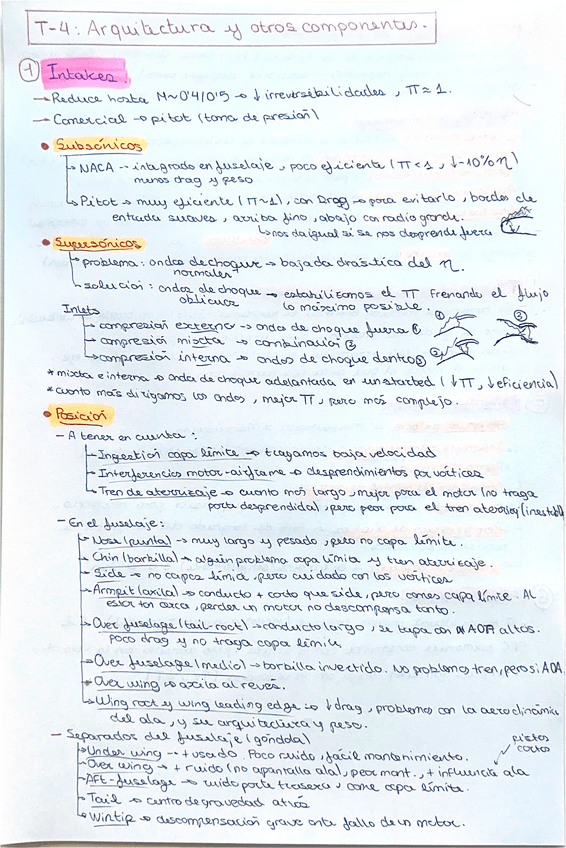 T-4: Arquitectura y otros componentes.
1 Intakes
→ Reduce hasta M~0'4/0'5 → ↓ irreversibilidades, π≈1.
→ Comercial → pitot (toma de presión)
• Subsónicos
NACA -- integrado en fuselaje, poco eficiente (π<1, ↓~10% η)
menos drag y peso
Pitot → muy eficiente (π~1), con Drag → para evitarlo, bordes de
entrada suaves, arriba fino, abajo con radio grande.
↳ nos da igual si se nos desprende fuera
• Supersónicos
problema: ondas de choque → bajada drástica del η.
normales
solución: ondas de choque → estabilizamos el π frenando el flujo
oblicuas lo máximo posible.
Inlets
compresión externa → ondas de choque fuera ①
compresión mixta → combinación ②
compresión interna → ondas de choque dentro ③
① ③
②
* mixta e interna → onda de choque adelantada en unstarted (↓π, ↓eficiencia)
* cuanto más dirigamos las ondas, mejor π, pero más complejo.
• Posición
- A tener en cuenta:
Ingestion capa límite → tragamos baja velocidad
Interferencias motor-airframe → desprendimientos por vórtices
Tren de aterrizaje → cuanto más largo, mejor para el motor (no traga
porta desprendida), pero peor para el tren aterrizaj (inestable)
- En el fuselaje:
Nose (punta) → muy largo y pesado, pero no capa límite.
Chin (barbilla) → algún problema capa límite y tren aterrizaje.
Side → no capas límia, pero cuidado con los vórtices
Armpit (axila) → conducto + corto que side, pero comes capa límite. Al
estar tan cerca, perder un motor no descompensa tanto.
Over fuselage (tail-root) → conducto largo, se tapa con AOA altos.
Poco drag y no traga capa límite
Over fuselage (medio) → barbilla invertido. No problemas tren, pero si AOA
Over wing → axila al revés.
Wing root y wing leading edge → ↓drag, problemas con la aerodinámica
del ala, y su arquitectura y peso.
- Separados del fuselaje (góndola)
pistas
cortas
Under wing → + usado. Poco ruido, fácil mantenimiento.
Over wing → + ruido (no apantalla ala), peor mant., + influencia ala
AFT-fuselage → ruido parte trasera, come capa límite.
Tail → centro de gravedad atrás
Wintip → descompensación grave ante fallo de un motor.